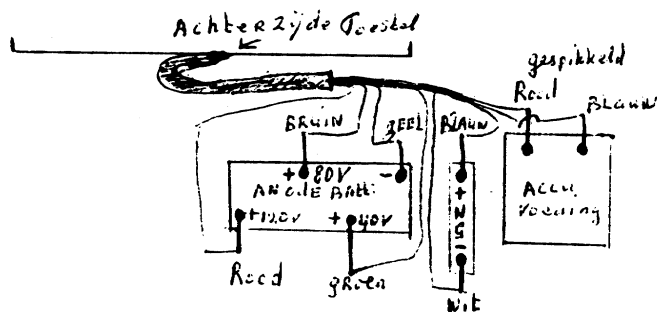 Achter Zijde Toestel
gespikkeld
Rood
BLAUW
BRUIN
gEEL
BLAUW
+ 80V -
ANODE Batt:
+120V + 40V
Rood
groen
+ N S -
wit
Accu
Voeding